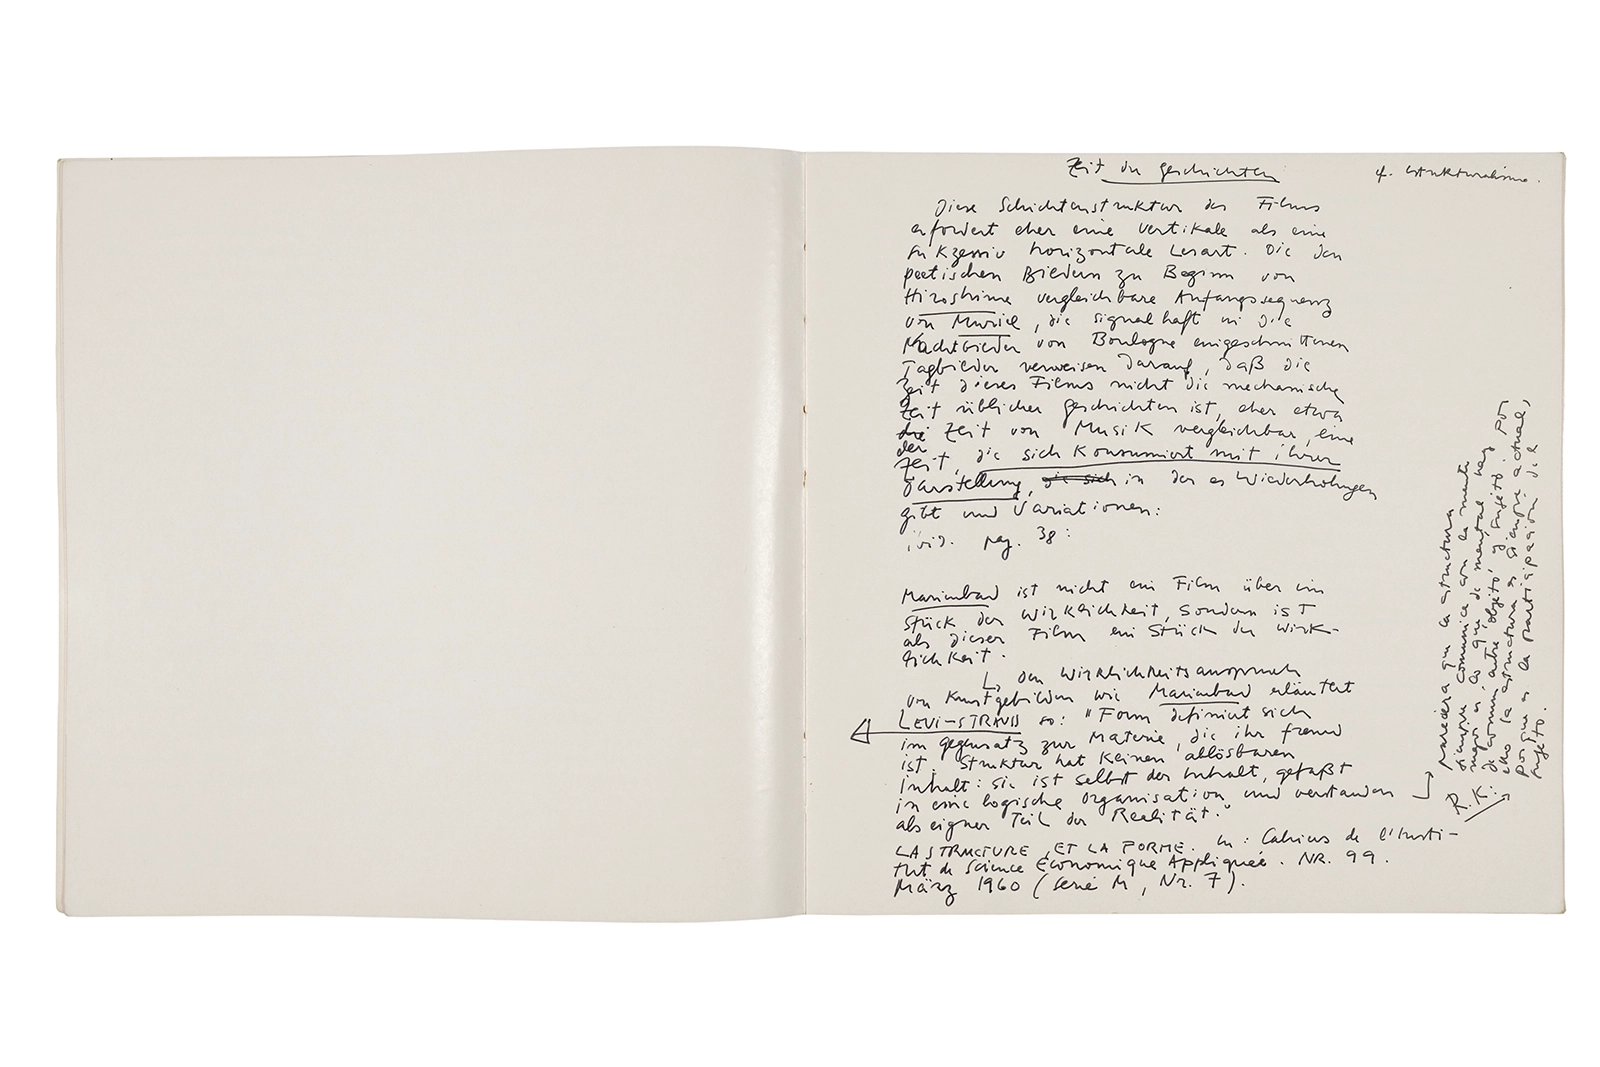 Zeit der Geschichten
4. estrukturalismo.
Diese Schichtenstruktur des Films
erfordert eher eine vertikale als eine
sukzessiv horizontale Lesart. Die den
poetischen Bildern zu Beginn von
Hiroshima vergleichbare Anfangssequenz
von Muriel, die signalhaft in die
Nachtbilder von Boulogne eingeschnittenen
Tagbilder verweisen darauf, daß die
Zeit dieses Films nicht die mechanische
Zeit üblicher Geschichten ist, eher etwa
die der Zeit von Musik vergleichbar, eine
Zeit, die sich Konsumiert mit ihrer
Darstellung, die sich in der es Wiederholungen
gibt und Variationen:
ibid. pag. 38:
Marienbad ist nicht ein Film über ein
Stück der Wirklichkeit, sondern ist
als dieser Film ein Stück der Wirk-
lichkeit.
Den Wirklichkeitsanspruch
von Kunstgebilden wie Marienbad erläutert
LEVI-STRAUSS so: "Form definiert sich
im Gegensatz zur Materie, die ihr fremd
ist. Struktur hat Keinen ablösbaren
Inhalt: sie ist selbst der Inhalt, gefaßt
in eine logische Organisation, und verstanden
als eigner Teil der Realität."
LA STRUCTURE ET LA FORME. in: Cahiers de l'Insti-
tut de Science Economique Appliquée. NR. 99.
März 1960 (Serie M, Nr. 7).
R.K:
pareciera que la estructura
siempre comunica con la mente
mejor es lo que de mental hay
de común entre 'objeto' y sujeto. Por
eso la estructura es siempre actual,
porque es la participación del
sujeto.